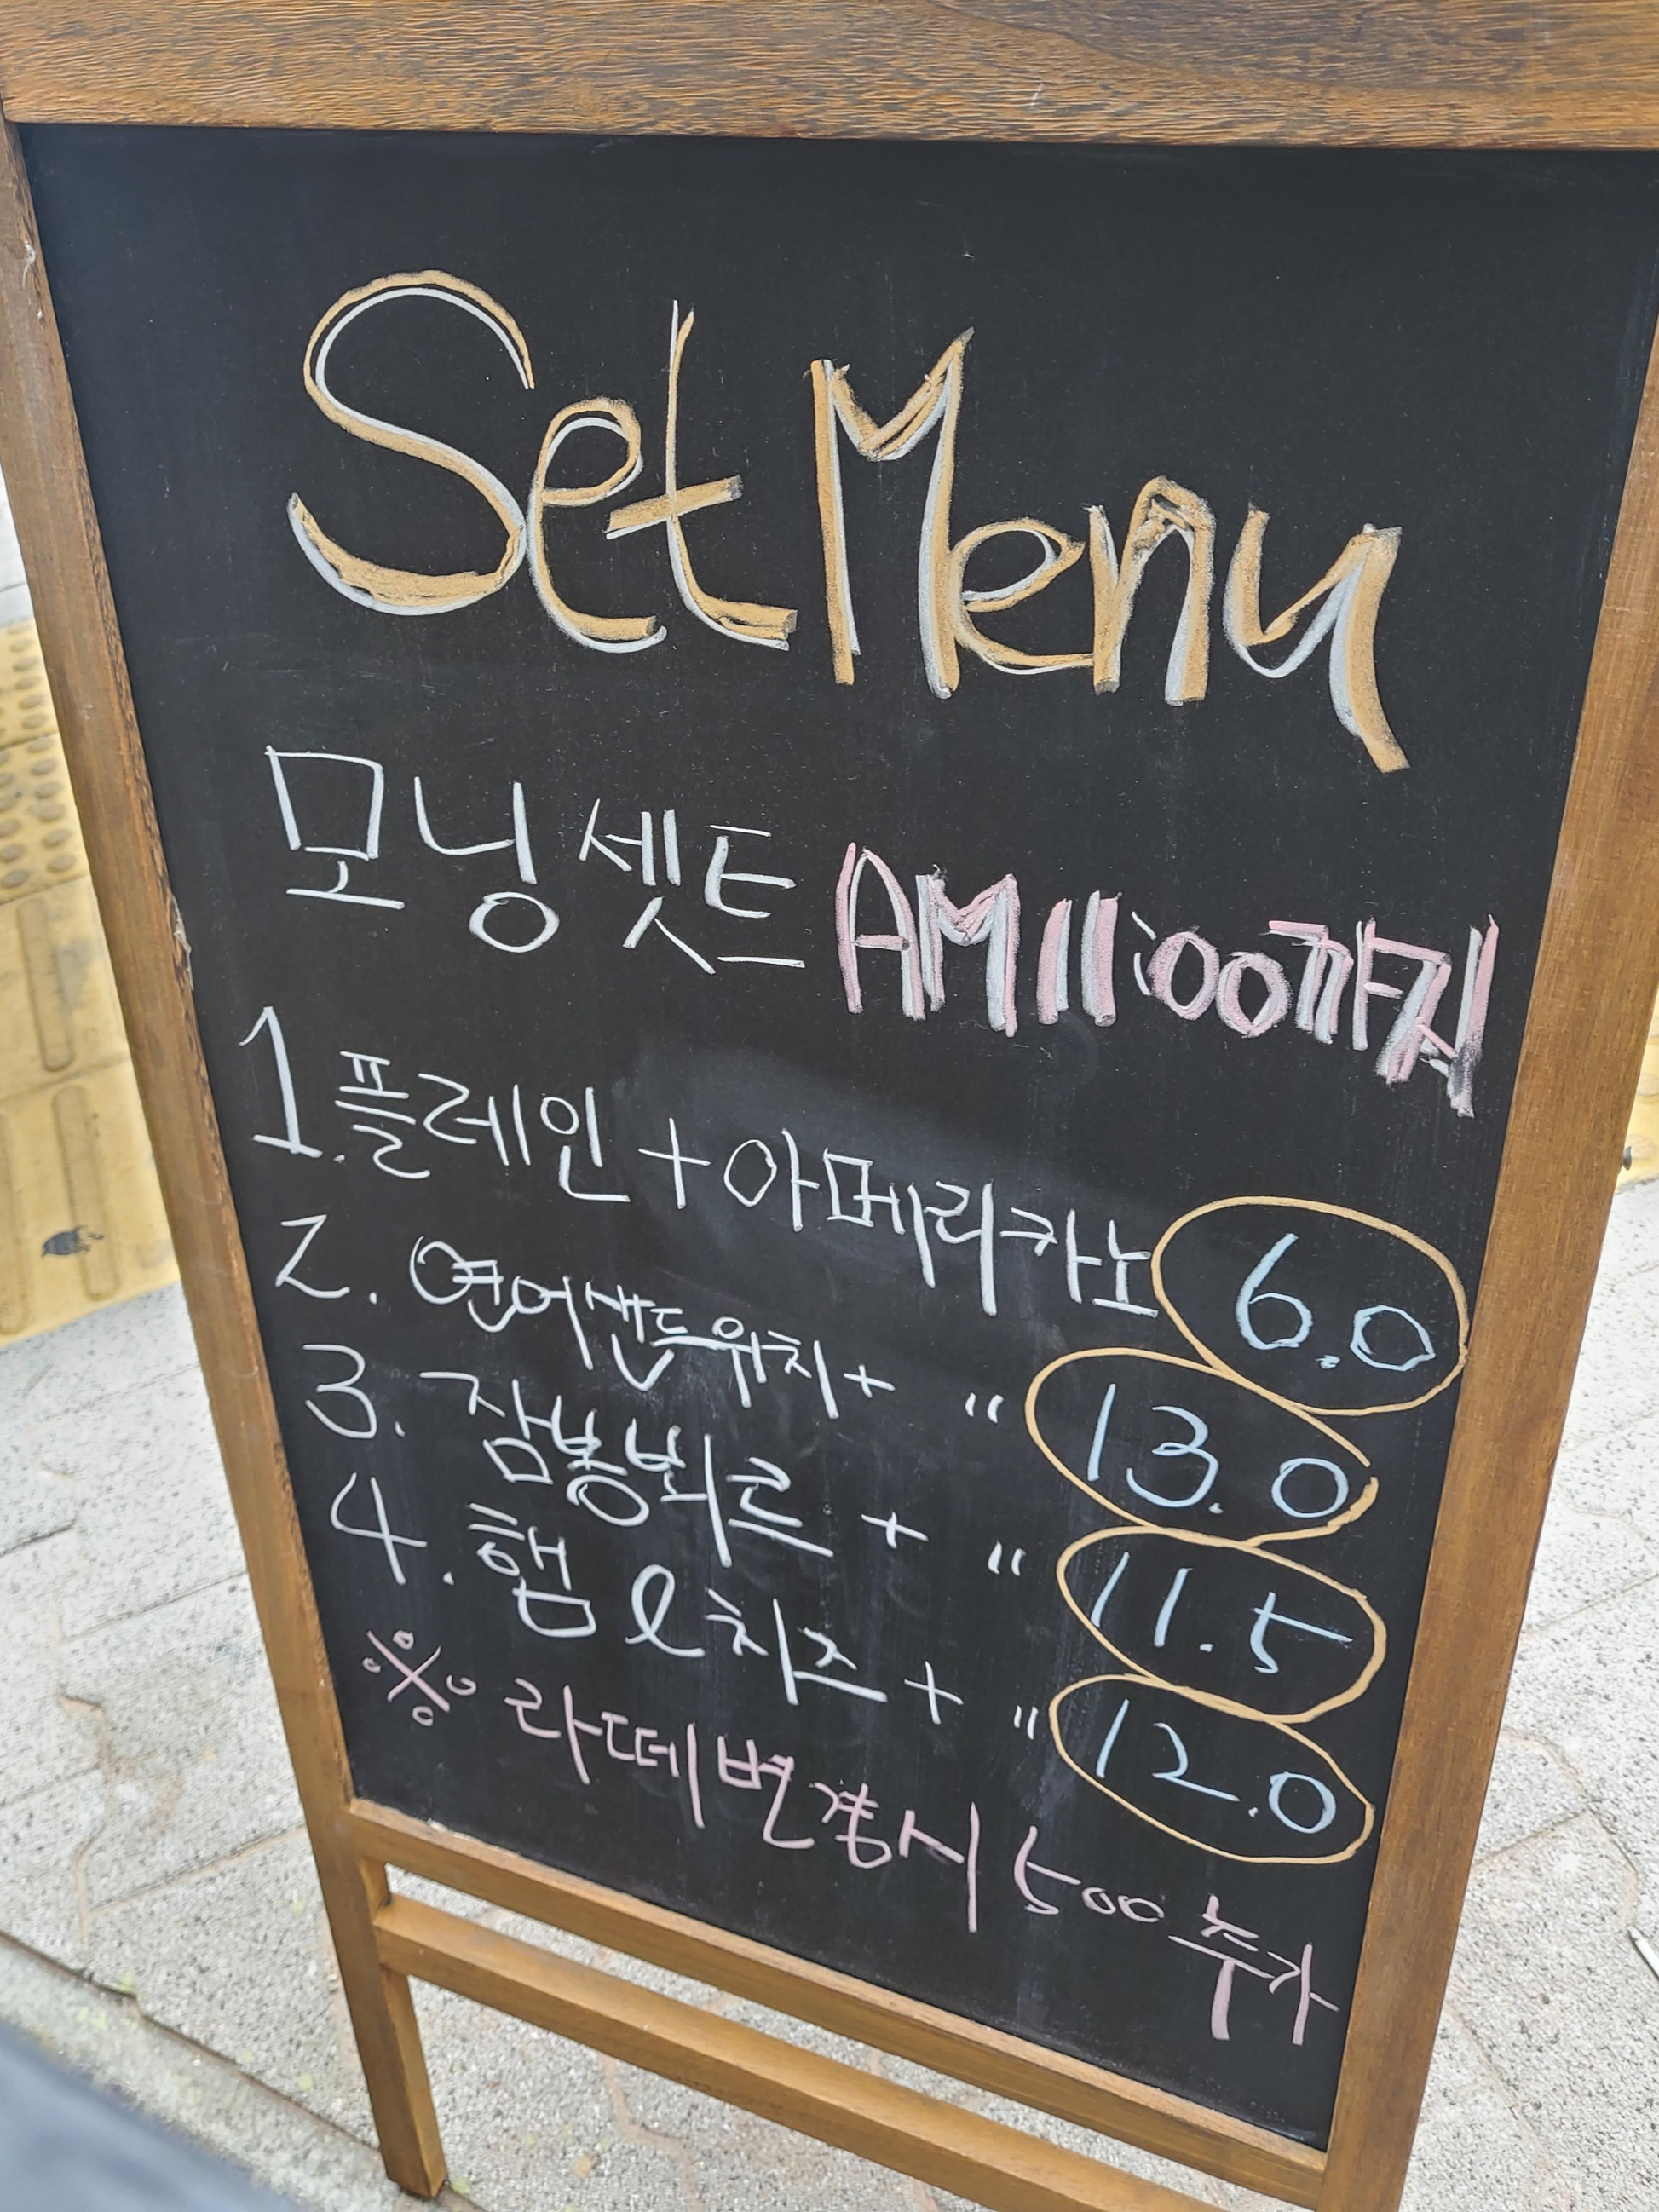 Set Menu
모닝셋트 AM 11:00까지
1. 플레인 + 아메리카노 6.0
2. 연어샌드위치 + " 13.0
3. 잠봉뵈르 + " 11.5
4. 햄 & 치즈 + " 12.0
※ 라떼변경시 500 추가